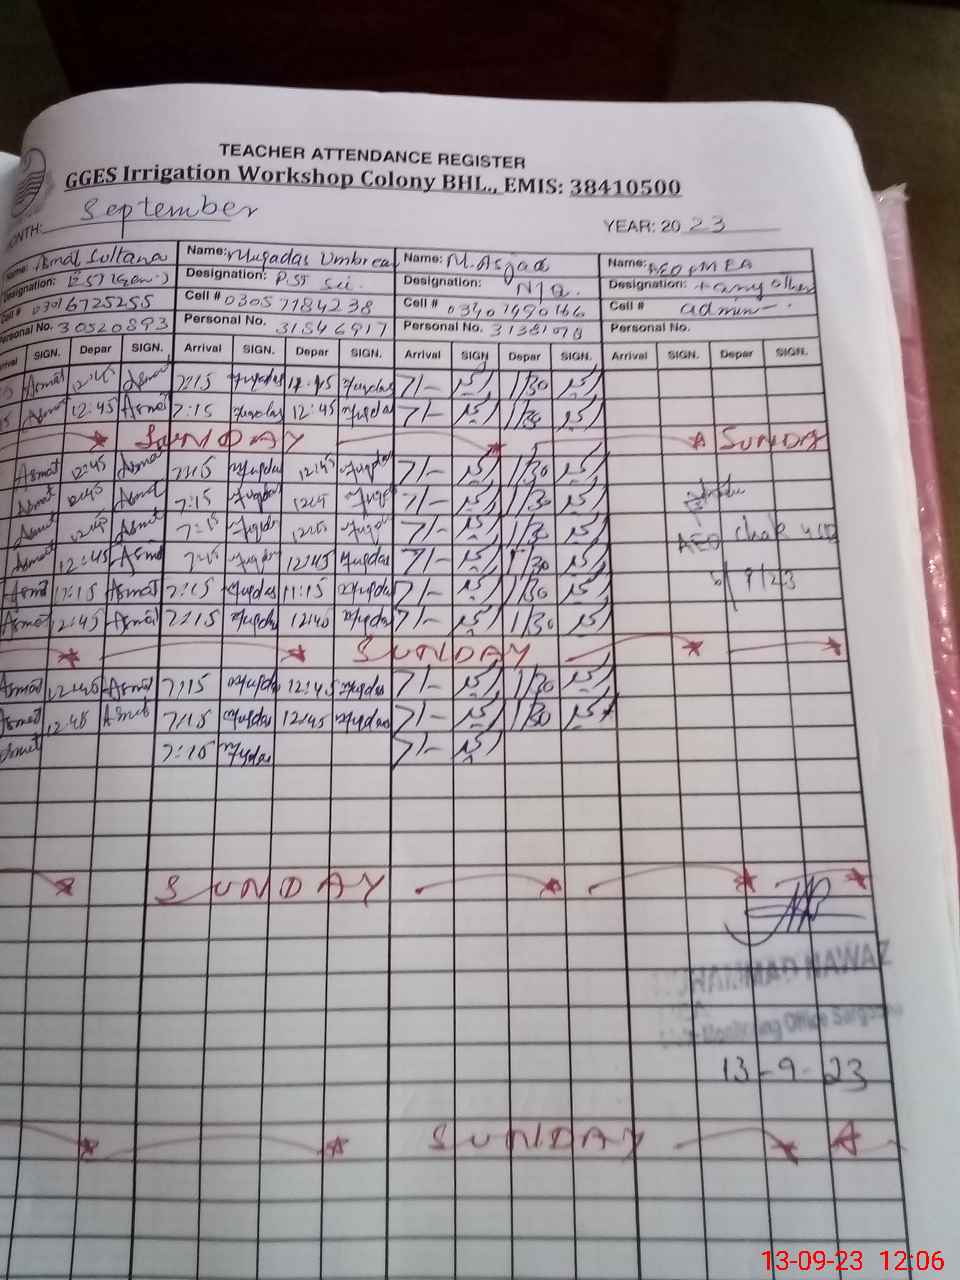 TEACHER ATTENDANCE REGISTER
GGES Irrigation Workshop Colony BHL., EMIS: 38410500
MONTH: September YEAR: 2023
Name: Asmat Sultana Name: Muqadas Umbreal Name: M. Asjad Name: AEO+MEA
Designation: EST (Gen) Designation: PST Sci. Designation: N/Q. Designation: + any other
Cell # 03016725255 Cell # 03057784238 Cell # 03401490166 Cell # admin
Personal No. 30520893 Personal No. 31546917 Personal No. 31381078 Personal No.
SIGN. Depar SIGN. Arrival SIGN. Depar SIGN. Arrival SIGN Depar SIGN. Arrival SIGN. Depar SIGN.
Asmat 12:45 Asmat 7:15 Muqdas 12:45 Muqdas 7/- 1/30
Asmat 12:45 Asmat 7:15 Muqdas 12:45 Muqdas 7/- 1/30
SUNDAY SUNDAY
Asmat 12:45 Asmat 7:15 Muqdas 12:45 Muqdas 7/- 1/30
Asmat 12:45 Asmat 7:15 Muqdas 12:45 Muqdas 7/- 1/30
Asmat 12:45 Asmat 7:15 Muqdas 12:45 Muqdas 7/- 1/30 AEO Chak
Asmat 12:45 Asmat 7:15 Muqdas 12:45 Muqdas 7/- 1/30
Asmat 11:15 Asmat 7:15 Muqdas 11:15 Muqdas 7/- 1/30 9/23
Asmat 12:45 Asmat 7:15 Muqdas 12:45 Muqdas 7/- 1/30
SUNDAY
Asmat 12:45 Asmat 7:15 Muqdas 12:45 Muqdas 7/- 1/30
Asmat 12:45 Asmat 7:15 Muqdas 12:45 Muqdas 7/- 1/30
Asmat 7:15 Muqdas 7/-
SUNDAY
MUHAMMAD NAWAZ
Monitoring Office Sargodha
13-9-23
SUNDAY
13-09-23 12:06